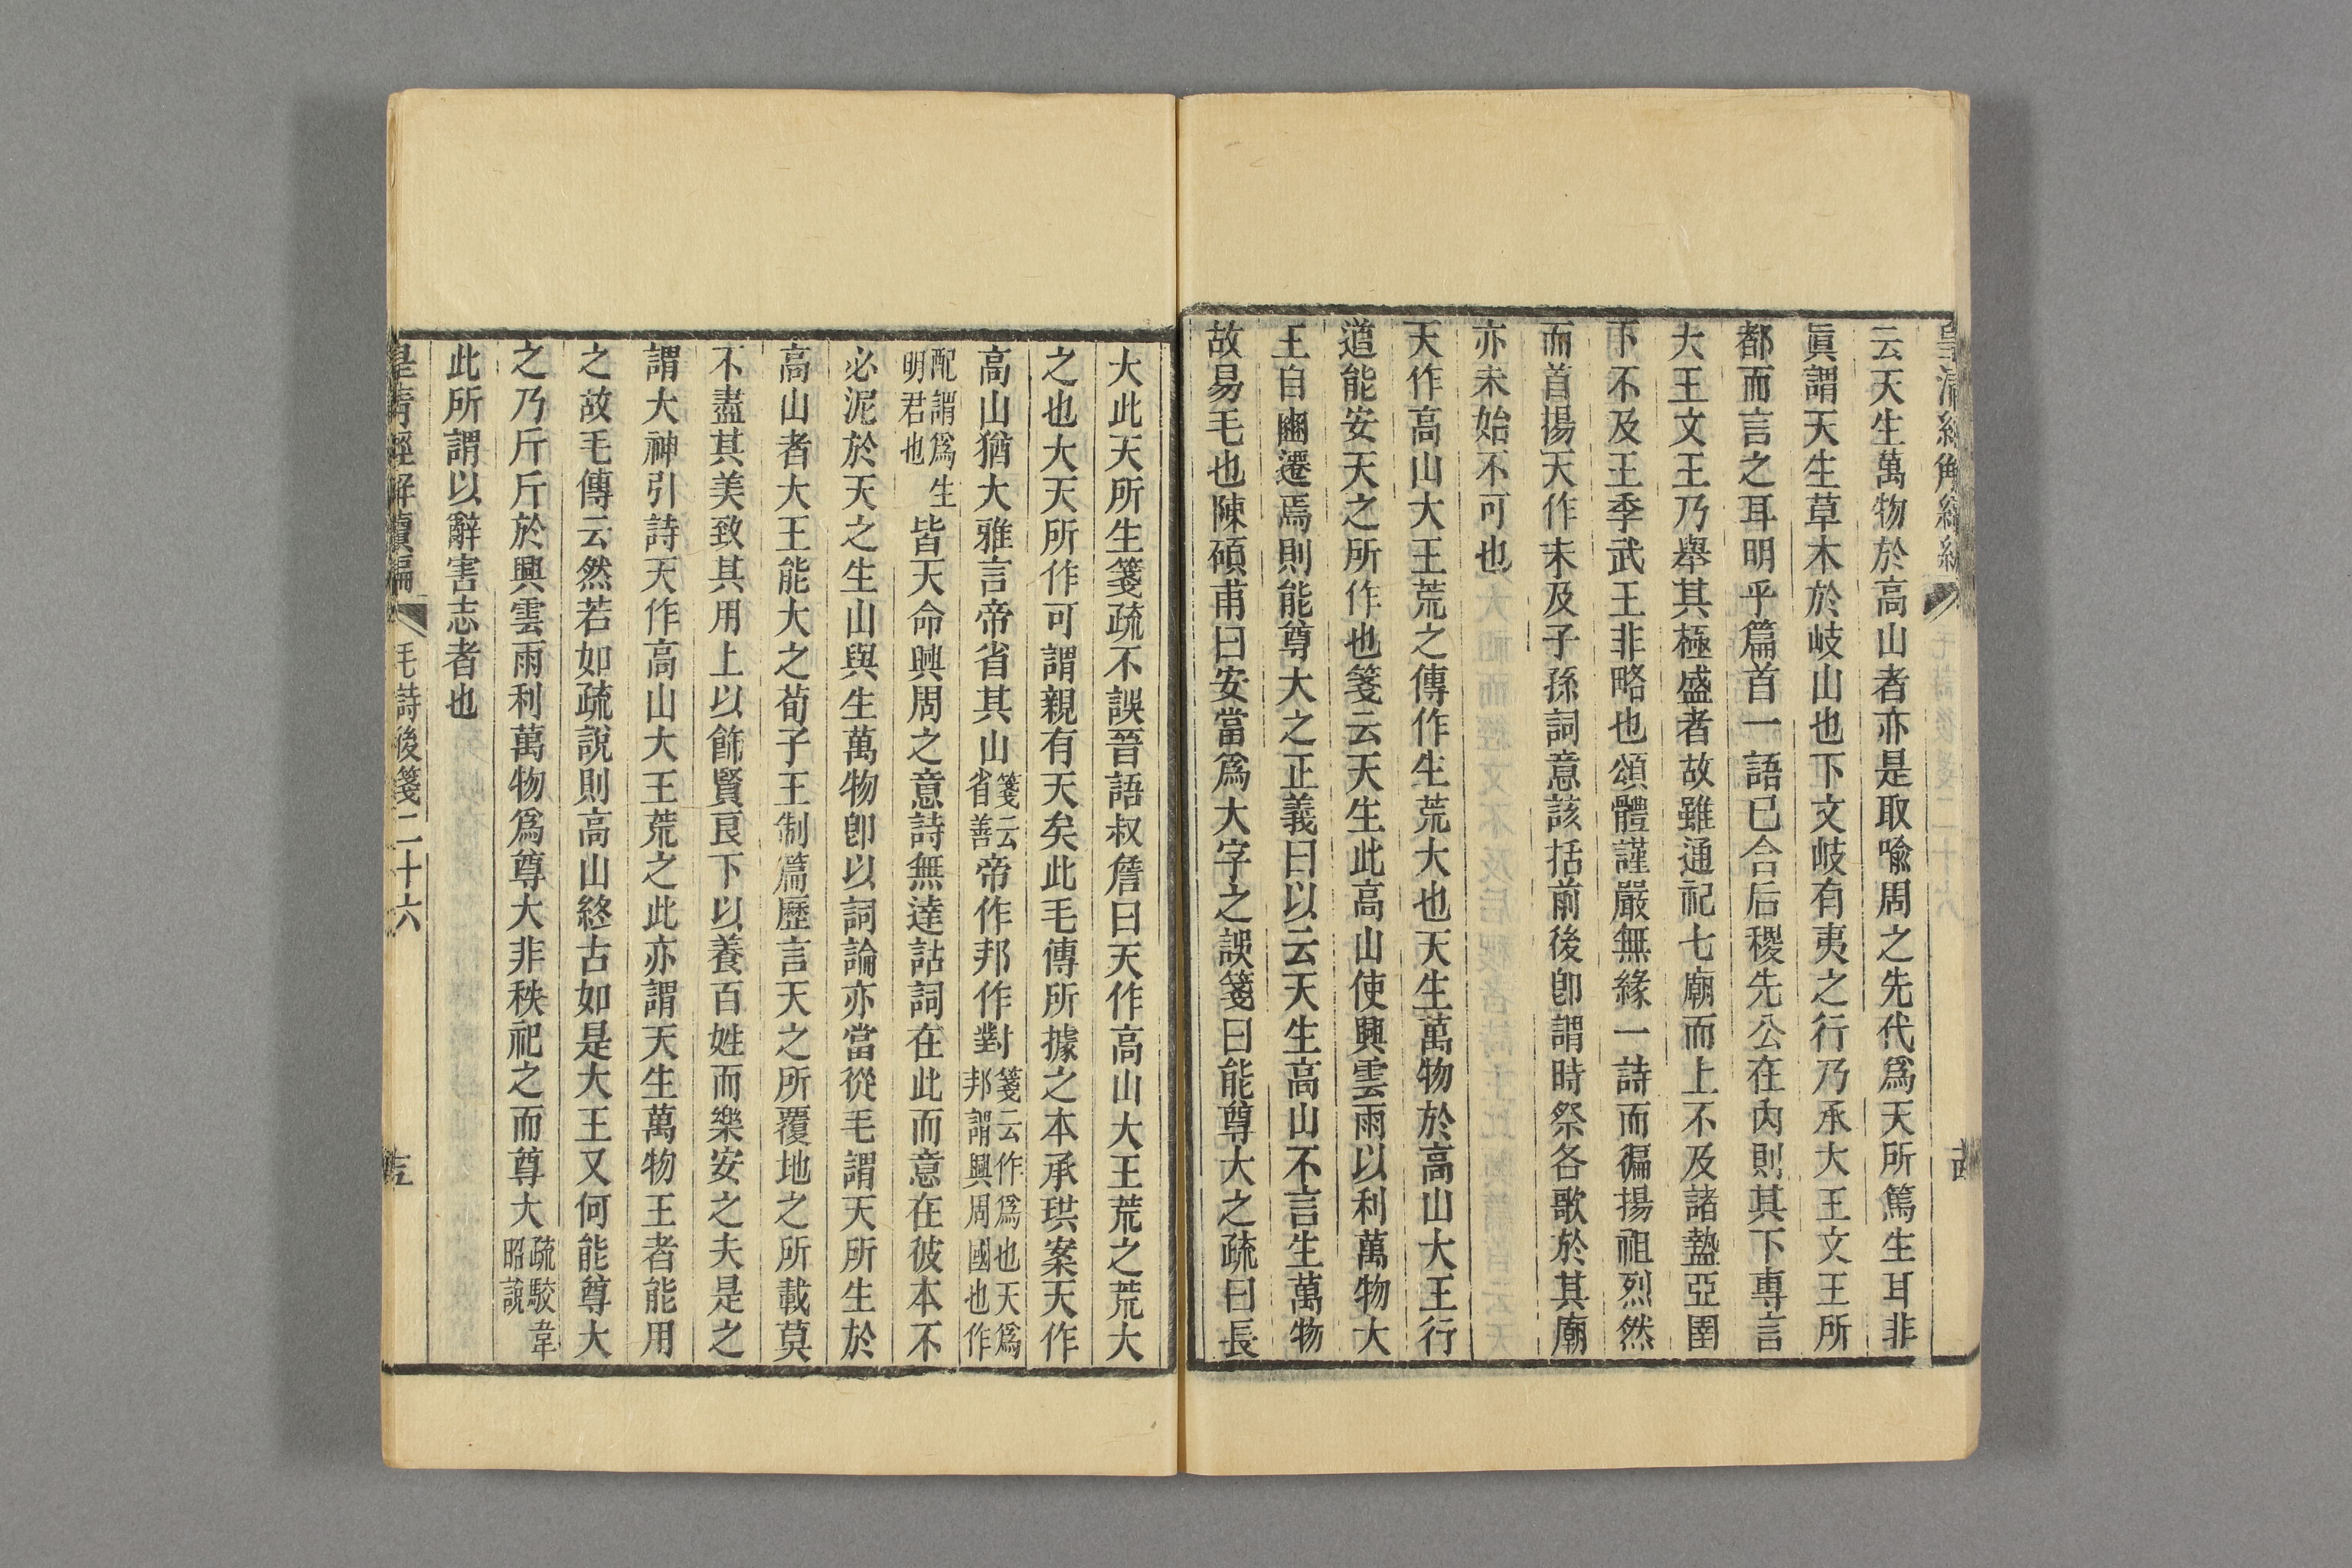 云天生萬物於高山者亦是取喩周之先代爲天所篤生耳非
眞謂天生草木於岐山也下文岐有夷之行乃承大王文王所
都而言之耳明乎篇首一語已合后稷先公在內則其下專言
大王文王乃舉其極盛者故雖通祀七廟而上不及諸盩亞圉
下不及王季武王非略也頌體謹嚴無緣一詩而徧揚祖烈然
而首揚天作末及子孫詞意該括前後卽謂時祭各歌於其廟
亦未始不可也
天作高山大王荒之傳作生荒大也天生萬物於高山大王行
道能安天之所作也箋云天生此高山使興雲雨以利萬物大
王自豳遷焉則能尊大之正義曰以云天生高山不言生萬物
故易毛也陳碩甫曰安當爲大字之誤箋曰能尊大之疏曰長
大此天所生箋疏不誤晉語叔詹曰天作高山大王荒之荒大
之也大天所作可謂親有天矣此毛傳所據之本承珙案天作
高山猶大雅言帝省其山箋云省善帝作邦作對箋云作爲也天爲邦謂興周國也作
配謂爲生明君也皆天命興周之意詩無達詁詞在此而意在彼本不
必泥於天之生山與生萬物卽以詞論亦當從毛謂天所生於
高山者大王能大之荀子王制篇歷言天之所覆地之所載莫
不盡其美致其用上以飾賢良下以養百姓而樂安之夫是之
謂大神引詩天作高山大王荒之此亦謂天生萬物王者能用
之故毛傳云然若如疏說則高山終古如是大王又何能尊大
之乃斤斤於興雲雨利萬物爲尊大非秩祀之而尊大疏駮韋昭說
此所謂以辭害志者也
皇清經解續編 毛詩後箋二十六 圭